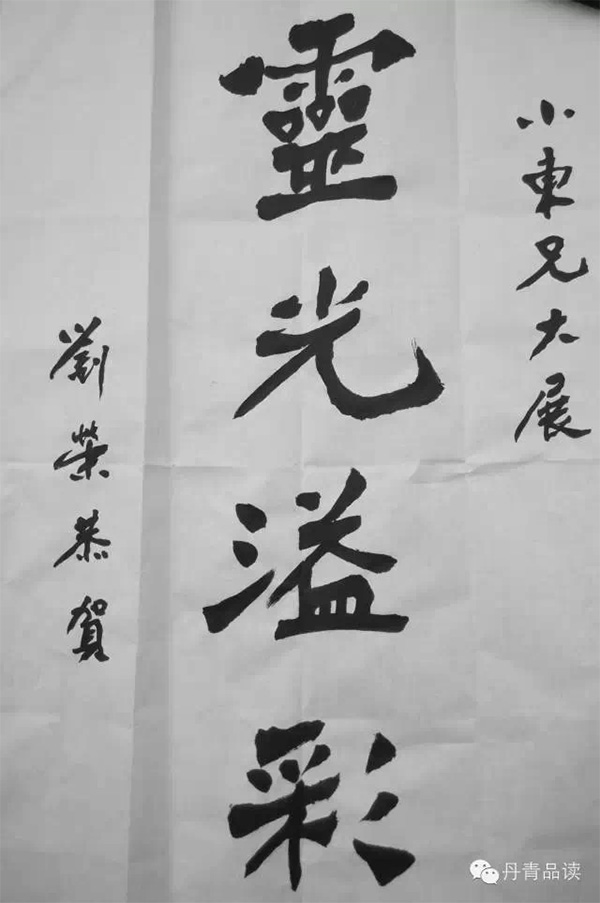 小東兄大展
靈光溢彩
劉榮恭賀
丹青品读